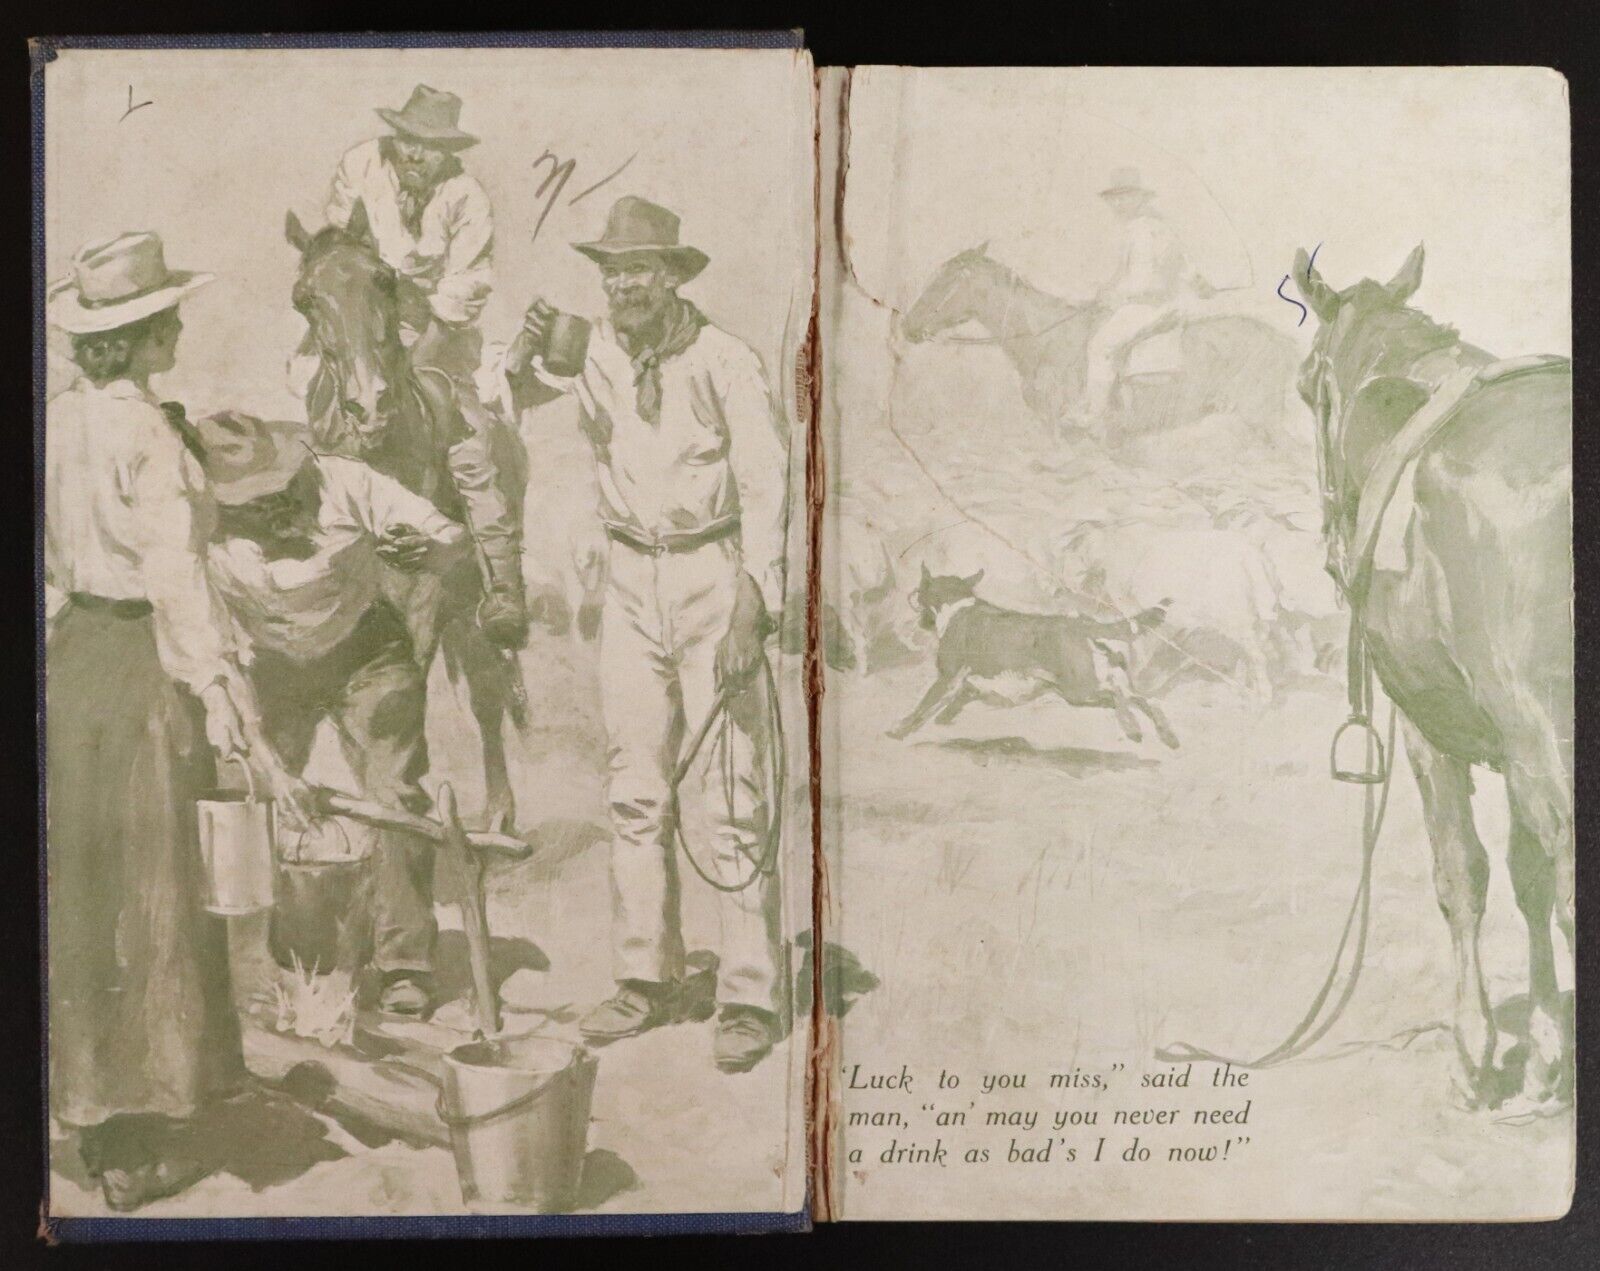 'Luck to you miss," said the
man, "an' may you never need
a drink as bad's I do now!"